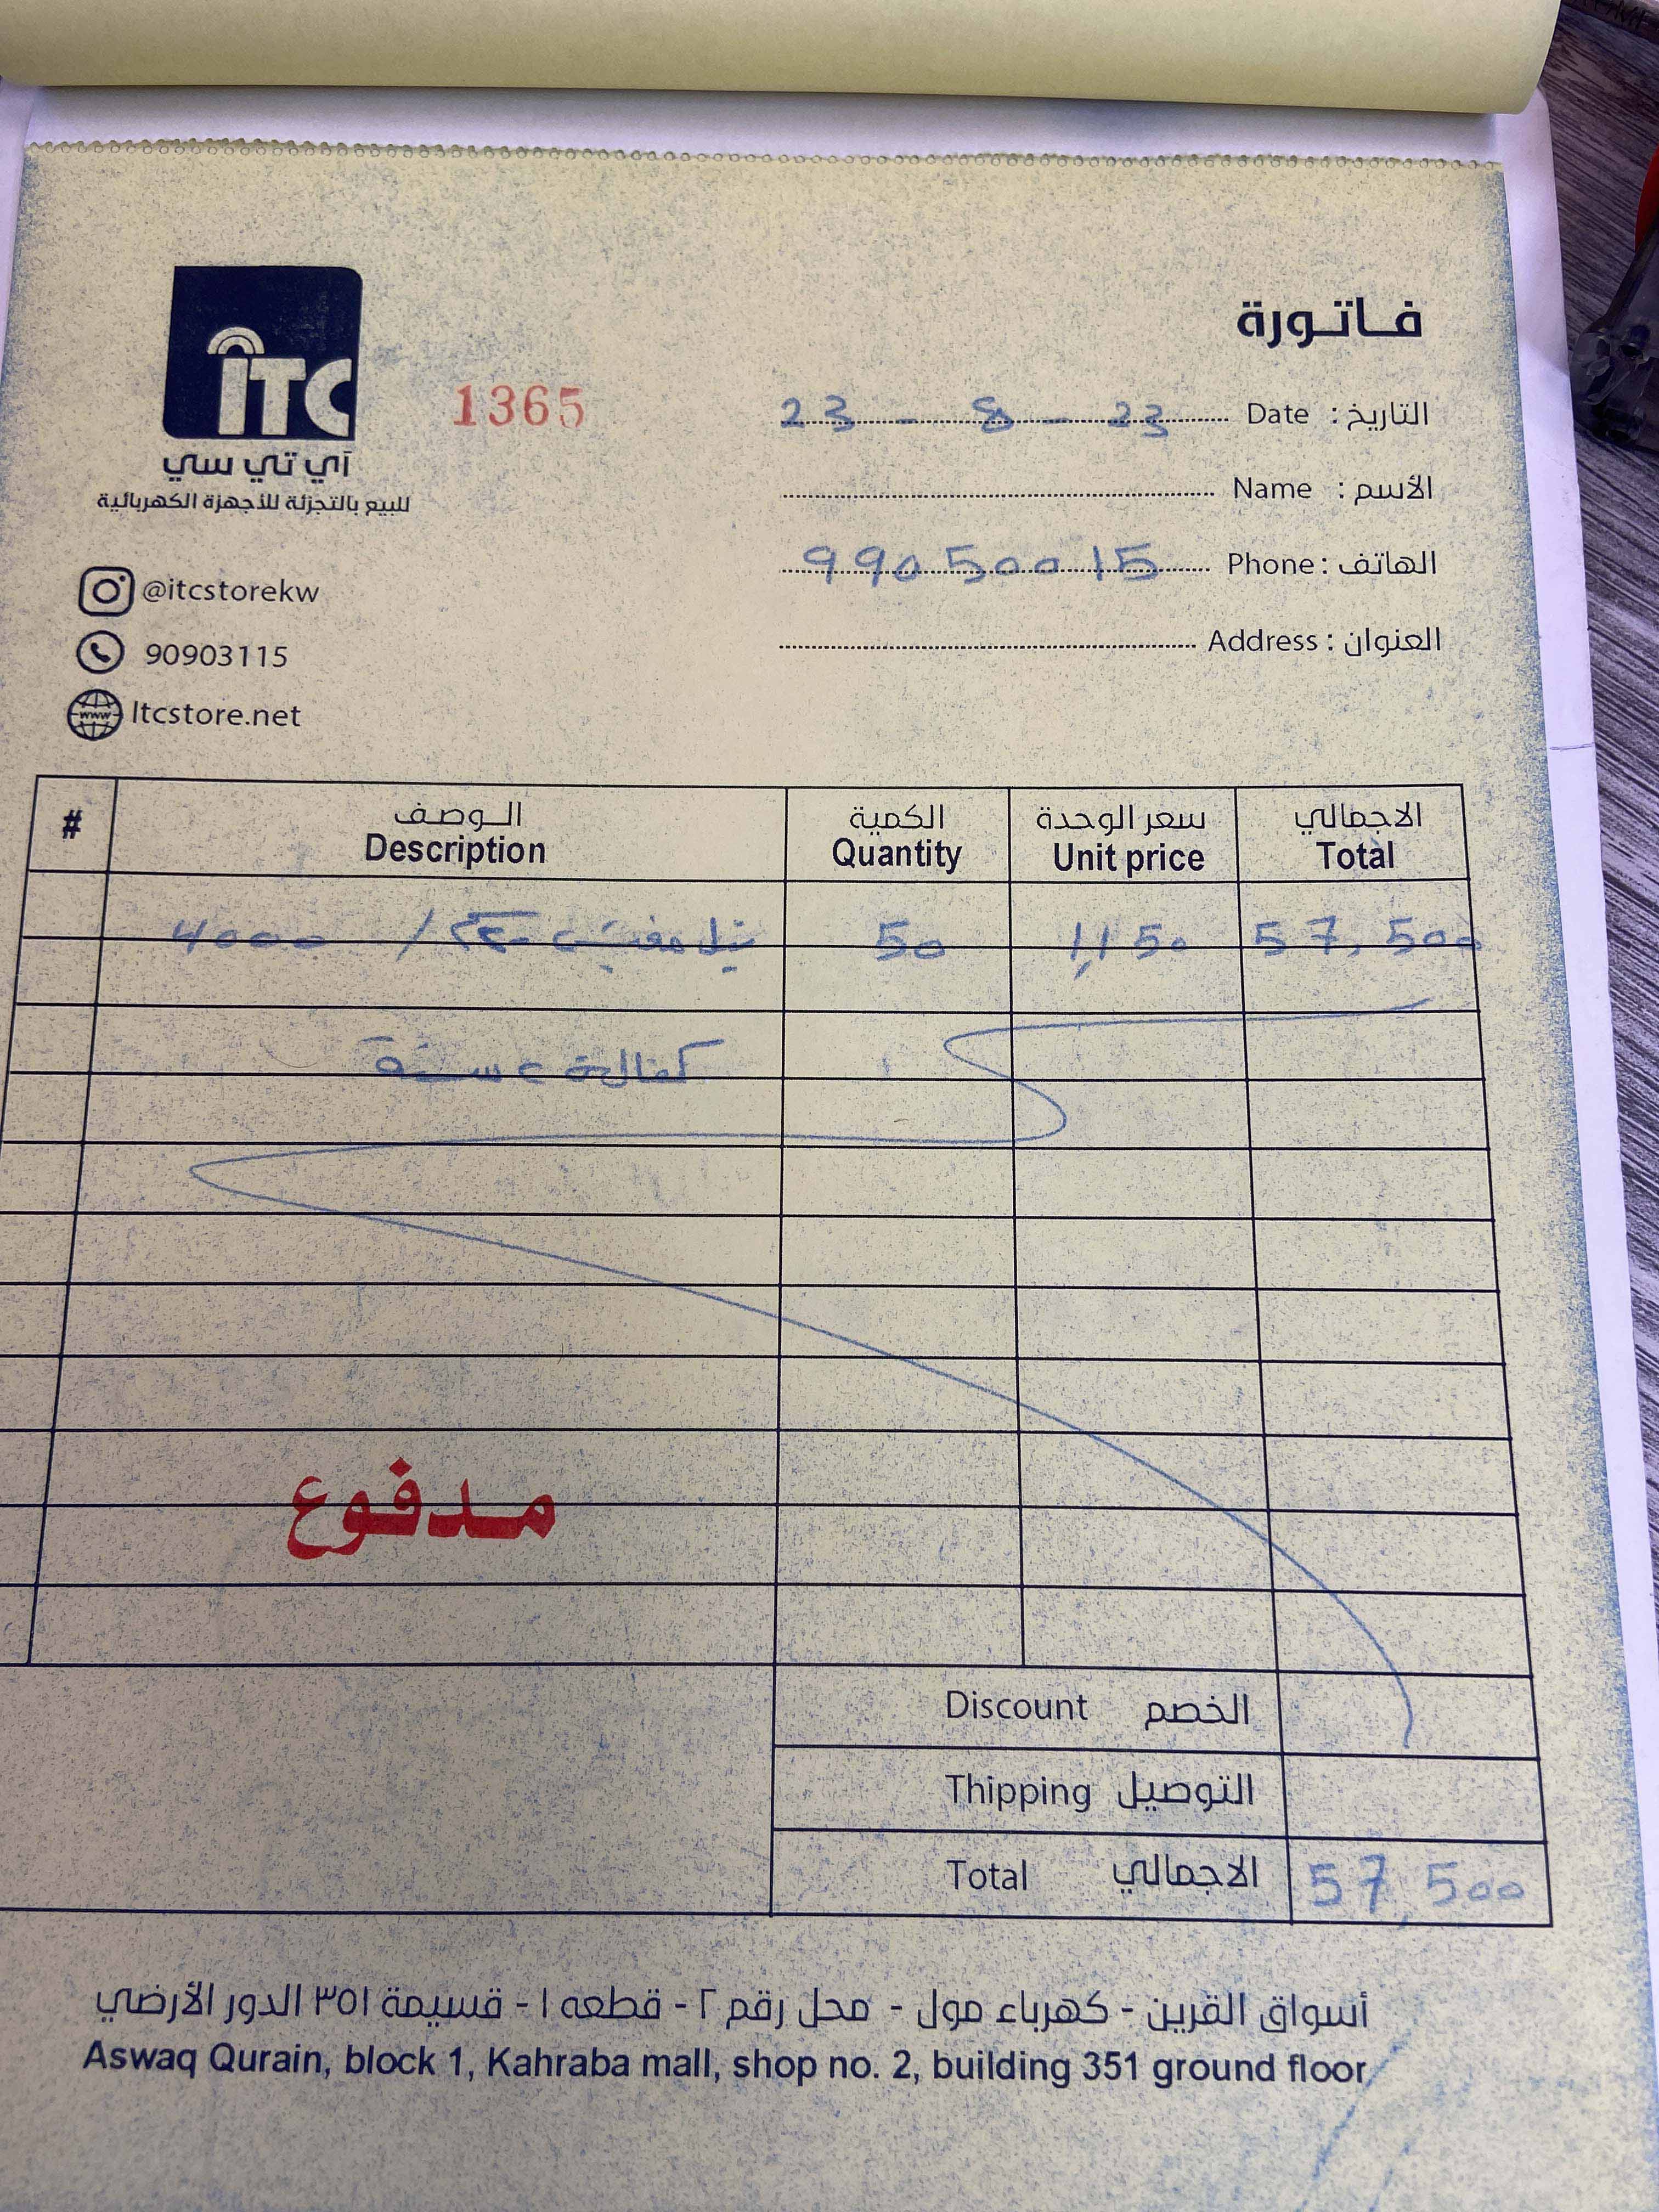 فاتورة
ITC
آي تي سي
للبيع بالتجزئة للأجهزة الكهربائية
1365
التاريخ : Date 23 - 8 - 23
الأسم : Name
الهاتف : Phone 99050015
العنوان : Address
@itcstorekw
90903115
www
Itcstore.net
# الوصف الكمية سعر الوحدة الاجمالي
Description Quantity Unit price Total
4000 / 50 1,150 57,500
كفالة ٢ سنة
مدفوع
Discount الخصم
Thipping التوصيل
Total الاجمالي 57,500
أسواق القرين - كهرباء مول - محل رقم ٢ - قطعه ١ - قسيمة ٣٥١ الدور الأرضي
Aswaq Qurain, block 1, Kahraba mall, shop no. 2, building 351 ground floor